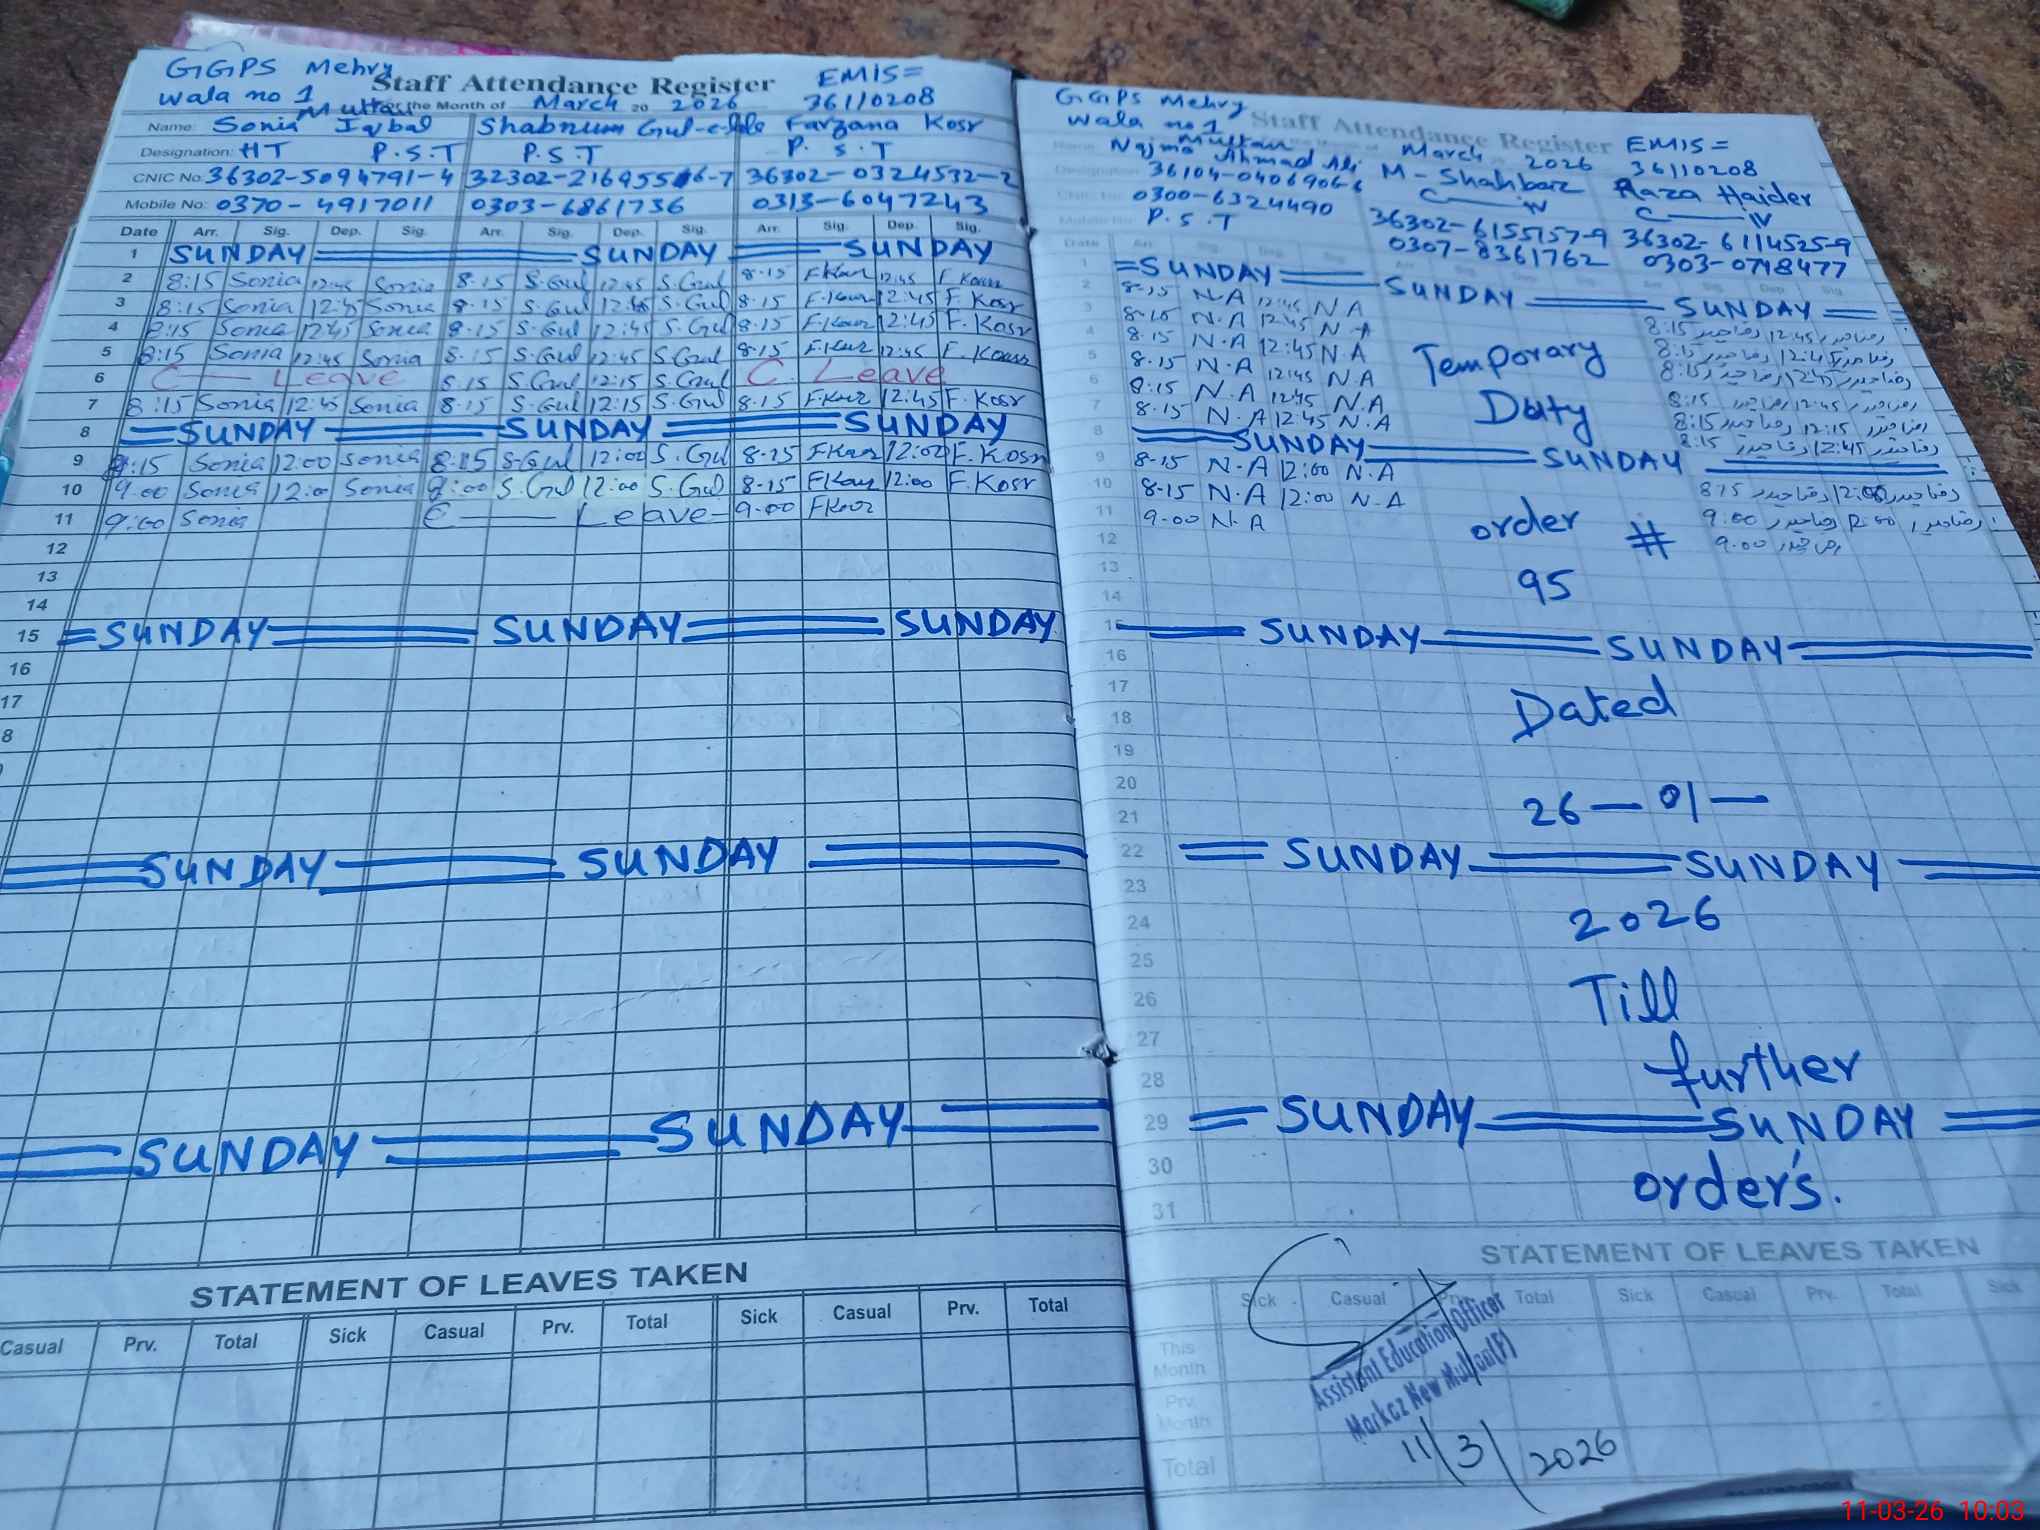 GGPS Mehry
Wala no 1
Multan
Staff Attendance Register
For the Month of March 20 2026
EMIS=
36110208
Name: Sonia Iqbal Shabnum Gul-e- Farzana Kosr
Designation: HT P.S.T P.S.T P.S.T
CNIC No 36302-5094791-4 32302-2169556-7 36302-0324532-2
Mobile No: 0370-4917011 0303-6861736 0313-6047243
Date Arr. Sig. Dep. Sig. Arr. Sig. Dep. Sig. Arr. Sig. Dep. Sig.
1 SUNDAY SUNDAY SUNDAY
2 8:15 Sonia 12:45 Sonia 8.15 S.Gul 12:45 S.Gul 8.15 F.Kosr 12:45 F Kosr
3 8:15 Sonia 12:45 Sonia 8.15 S.Gul 12:45 S.Gul 8.15 F.Kosr 12:45 F. Kosr
4 8:15 Sonia 12:45 Sonia 8.15 S.Gul 12:45 S.Gul 8.15 F.Kosr 12:45 F.Kosr
5 8:15 Sonia 12:45 Sonia 8.15 S.Gul 12:45 S.Gul 8.15 F.Kosr 12:45 F.Kosr
6 C Leave 8.15 S.Gul 12:15 S.Gul C. Leave
7 8:15 Sonia 12:45 Sonia 8.15 S.Gul 12:15 S.Gul 8.15 F.Kosr 12:45 F.Kosr
8 SUNDAY SUNDAY SUNDAY
9 8:15 Sonia 12:00 Sonia 8:15 S.Gul 12:00 S.Gul 8.15 F.Kosr 12:00 F.Kosr
10 9.00 Sonia 12:00 Sonia 9:00 S.Gul 12:00 S.Gul 8.15 F.Kosr 12:00 F.Kosr
11 9:00 Sonia C Leave 9.00 F.Kosr
12
13
14
15 SUNDAY SUNDAY SUNDAY
16
17
8
SUNDAY SUNDAY
SUNDAY SUNDAY
STATEMENT OF LEAVES TAKEN
Casual Prv. Total Sick Casual Prv. Total Sick Casual Prv. Total
GGPS Mehry
Wala no 1
Multan
Staff Attendance Register
March 2026
EMIS=
36110208
Najma Ahmad Ali M-Shahbaz Raza Haider
36104-0406906-6 C IV C IV
0300-6324490 36302-6155157-9 36302-6114525-9
P.S.T 0307-8361762 0303-0748477
Date
1 SUNDAY SUNDAY SUNDAY
2 8.15 N.A 12:45 N A 8:15 رضا حیدر 12:45 رضا حیدر
3 8.15 N.A 12:45 N.A 8:15 رضا حیدر 12:45 رضا حیدر
4 8.15 N.A 12:45 N.A 8:15 رضا حیدر 12:45 رضا حیدر
5 8.15 N.A 12:45 N.A 8:15 رضا حیدر 12:45 رضا حیدر
6 8:15 N.A 12:45 N.A 8:15 رضا حیدر 12:15 رضا حیدر
7 8.15 N.A 12:45 N.A 8:15 رضا حیدر 12:45 رضا حیدر
Temporary
Duty
8 SUNDAY SUNDAY
9 8.15 N.A 12:00 N.A 815 رضا حیدر 12:00 رضا حیدر
10 8.15 N.A 12:00 N.A 9:00 رضا حیدر 12.00 رضا حیدر
11 9.00 N.A 9.00 رضا حیدر
order #
12
13
95
14
15 SUNDAY SUNDAY
16
17
Dated
18
19
20
26-01-
21
22 SUNDAY SUNDAY
23
2026
24
25
Till
26
27
further
28
29 SUNDAY SUNDAY
30
order's.
31
STATEMENT OF LEAVES TAKEN
Sick Casual Prv. Total Sick Casual Prv. Total Sick
This Month
Prv. Month
Total
Assistant Education Officer
Markaz New Multan(F)
11/3/2026
11-03-26 10:03